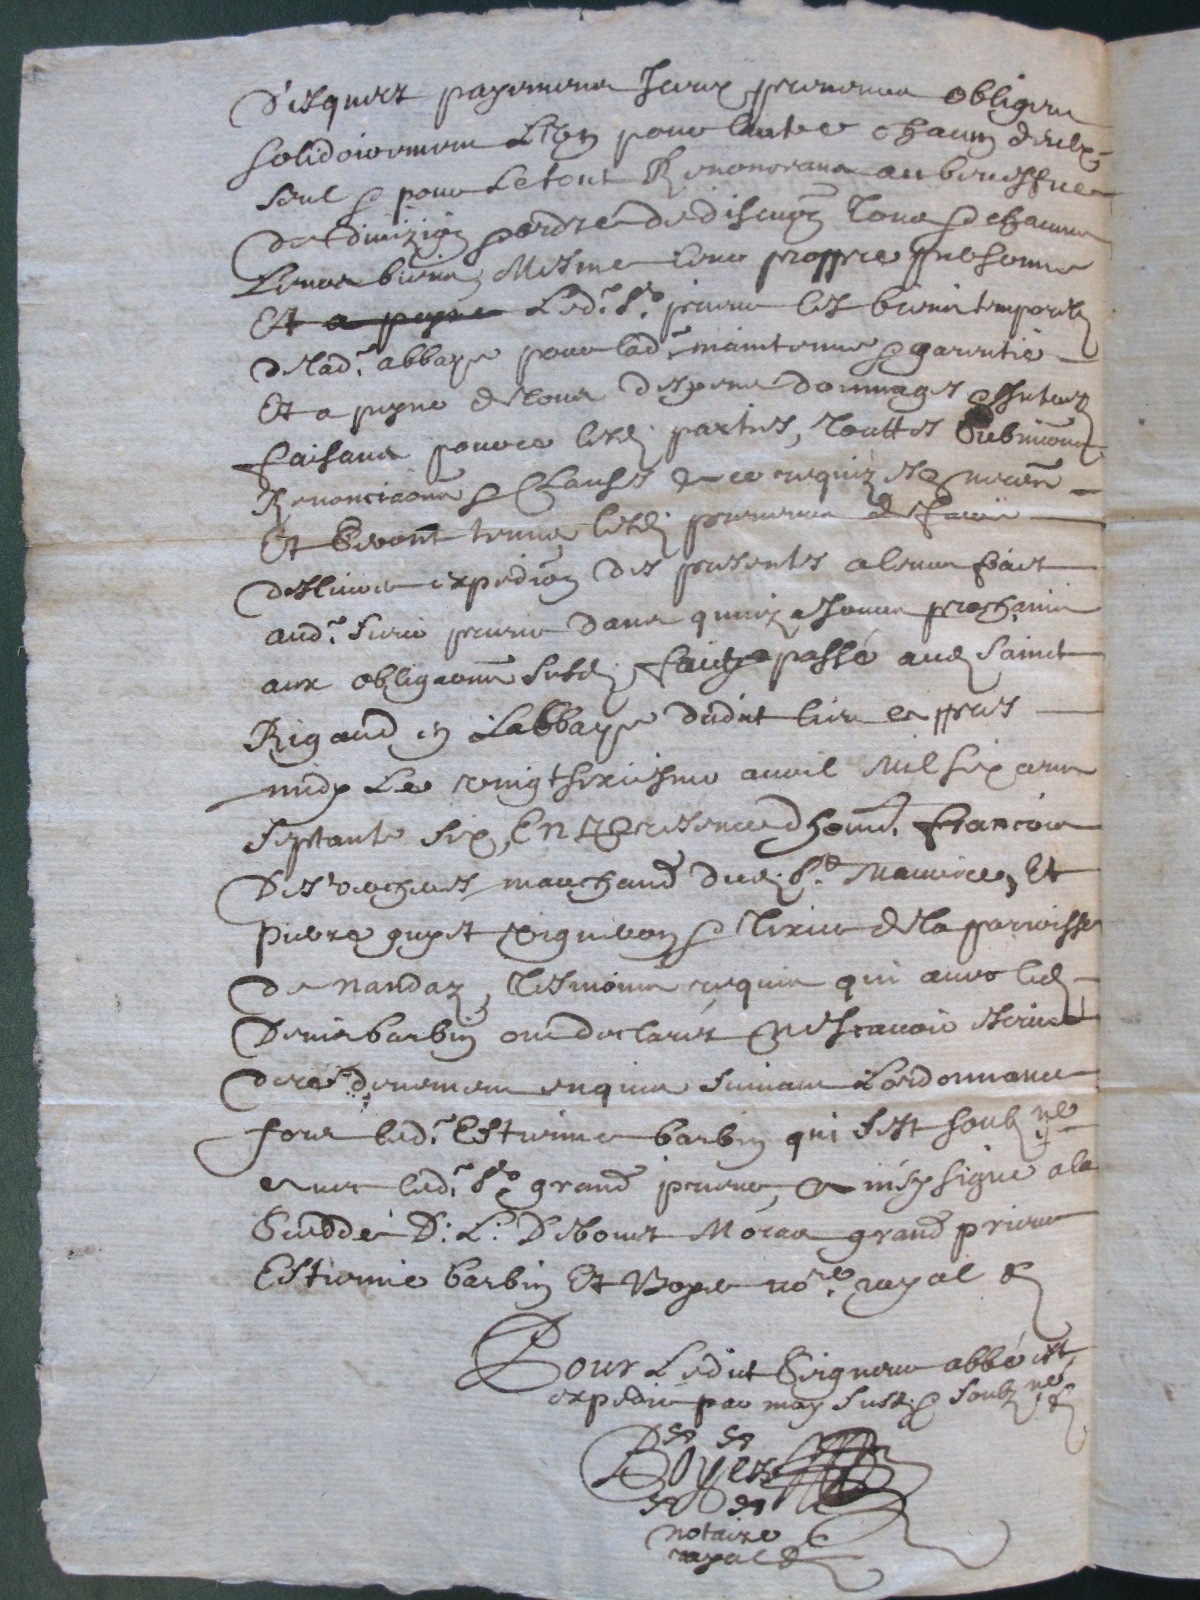 Desquels payement Iceux preneurs obligent
solidairement L'un pour l'autre chacun d'eulx
seul & pour Le tout Renonceant au beneffice
de divizion ordre de discution Tous & chacuns
Leurs biens Mesme Leur propre personne
Et a peyne Led.t Sr. prieur les biens temporels
de lad.t abbaye pour lad.t maintenue & garentie
Et a peyne de tous despens dommages Interez
faisant pource lesd. parties, Touttes Submissions
Renonciaons & Clauses de ce requizes necess.res
Et Seront tenus lesd. preneurs de faire
deslivrer expedion des presentes a leurs frais
aud.t Sieur prieur dans quinze Jours prochains
aux obligaons susd. faict & passé aud. Sainct
Rigaud en L'abbaye dudict lieu appres
midy Le vingt sixiesme avril Mil six cens
septante six, En presence d'hon. François
Des marchand dud. St. Maurice, Et
pierre guyot vigneron & Texier de la parroisse
de nandaz, Tesmoins requis qui avec led.
Denis barbin ont declaret Ne scavoir escrire
de ce deuement enquis suivant L'ordonnance
fors led.t Estienne barbin qui s'est soubz.né
avec led.t Sr. grand prieur, Ainsy signé a la
Ceddé D: L: Debouet Morau grand prieur
Estienne barbin Et Boyer no.re royal &
Pour Ledict Seigneur abbé est
expedié par moy susd. & soubz.né &
Boyer
notaire
royal &